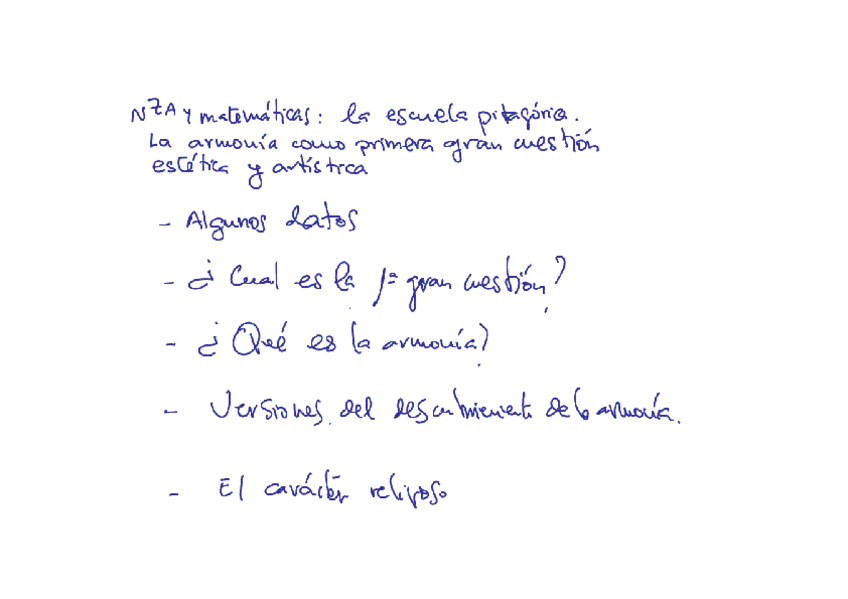 NZA y matemáticas: la escuela pitagórica.
La armonía como primera gran cuestión
estética y artística
- Algunos datos
- ¿Cual es la 1ª gran cuestión?
- ¿Qué es la armonía?
- Versiones del descubrimiento de la armonía.
- El carácter religioso